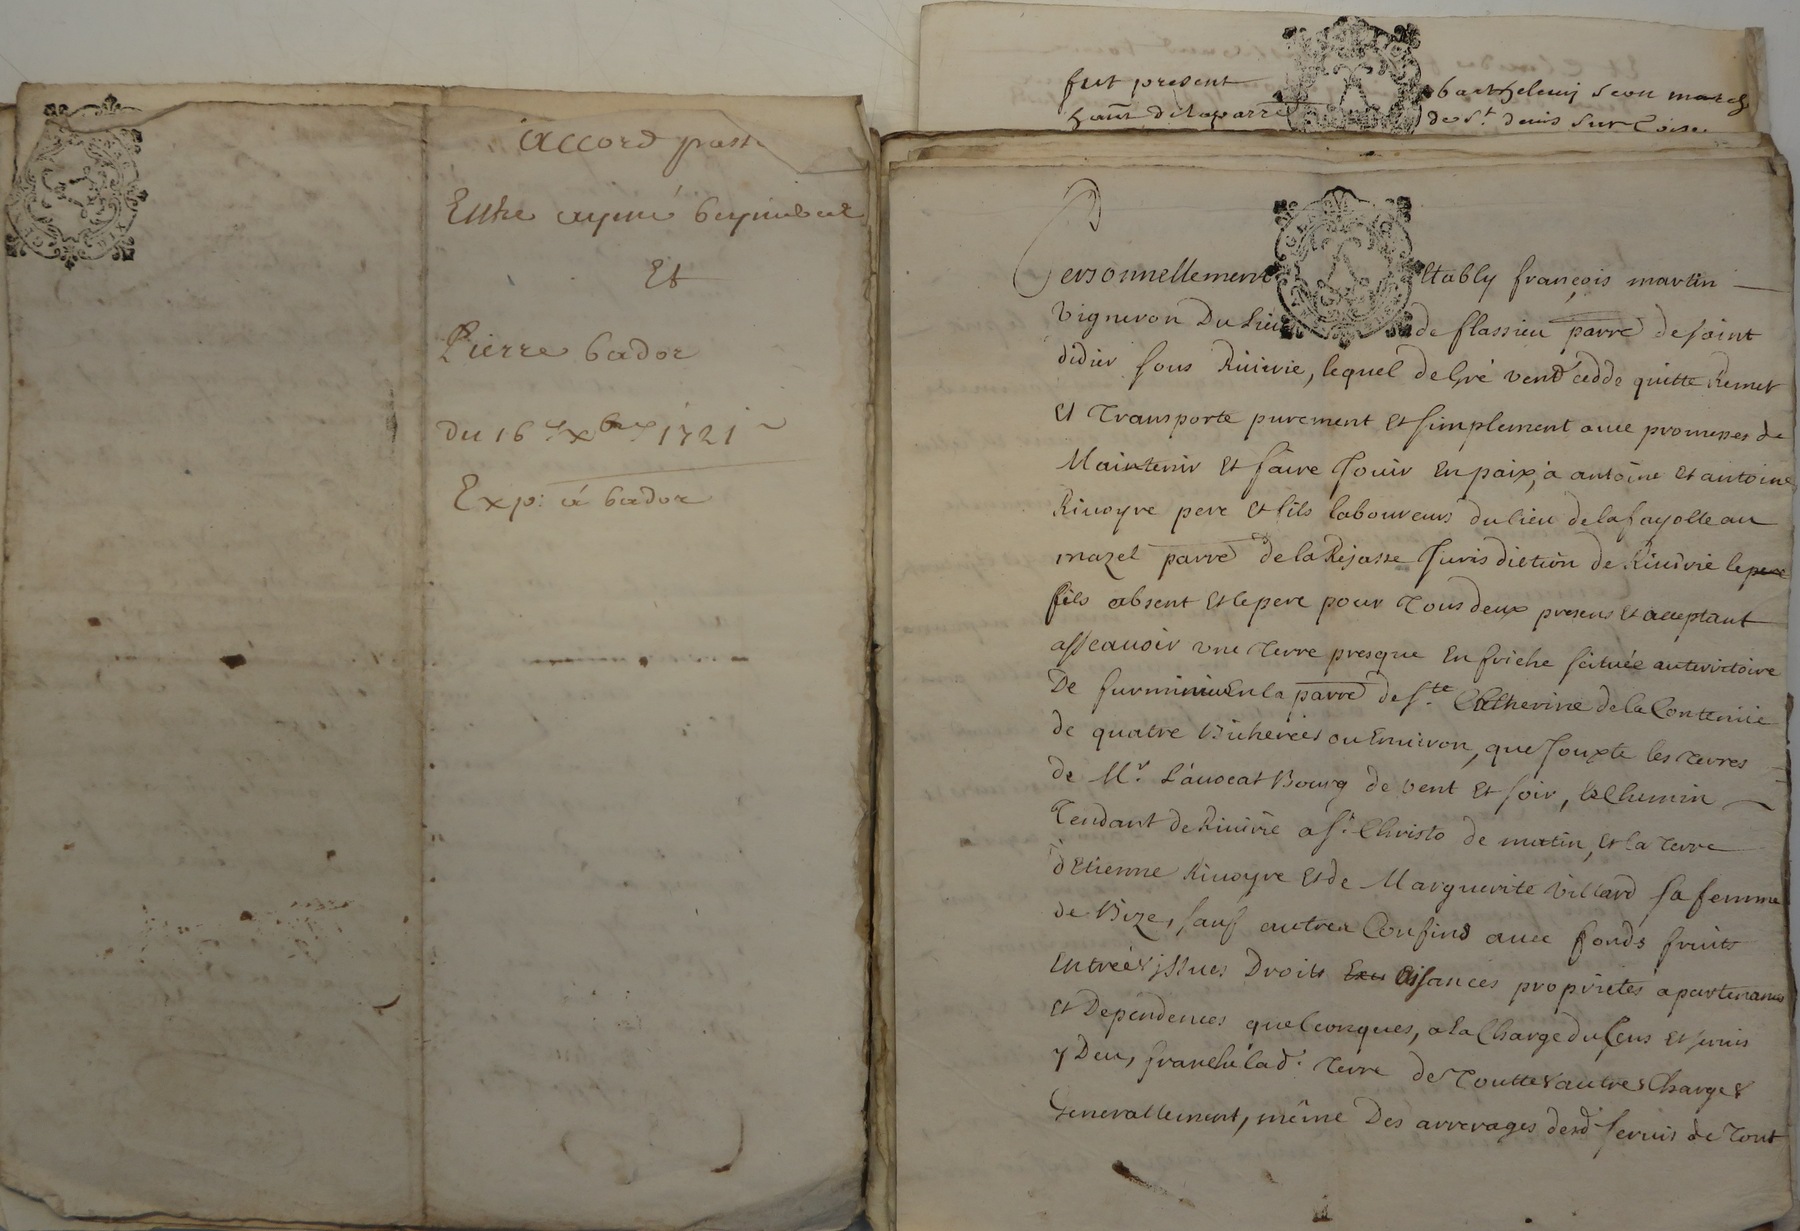 accord passé
Entre aymé beyníbert
Et
Pierre bador
du 16.e xbre 1721
Exp: á bador
fut present barthelemy seon march
de St. denis sur Coise
Personnellement Etably françois martin
Vigneron Du Lieu de flassieu parre de saint
didier sous Riuirie, lequel de Gré vend cedde quitte Remet
Et Transporte purement Et simplement auec promesses de
Maintenir Et faire Jouir En paix, à antoine Et antoine
Riuoyre pere Et fils laboureurs du lieu de la fayolle au
mazel parre de la Rejasse Jurisdiction de Riuirie le pere
fils absent Et le pere pour Tous deux present Et acceptant
assçauoir vne Terre presque En friche scituée au territoire
De furminieu En la parre de Ste. Catherine de la Contenüe
de quatre Bicherées ou Enuiron, que Jouxte les Terres
de Mr. L'auocat Bourg de vent Et soir, le Chemin
Tendant de Riuirie a St. Christo de matin, Et la Terre
d'Etienne Riuoyre Et de Marguerite Villard sa femme
de Bize, sauf autres Confins auec fonds fruits
Entreés issues Droits Aisances proprietés apartenances
Et Dependences quelconques, a la Charge du Cens Et seruis
y Deu, franche lad. Terre de Touttes autres Charges
Generallement, même Des arrerages desd. seruis de Tout